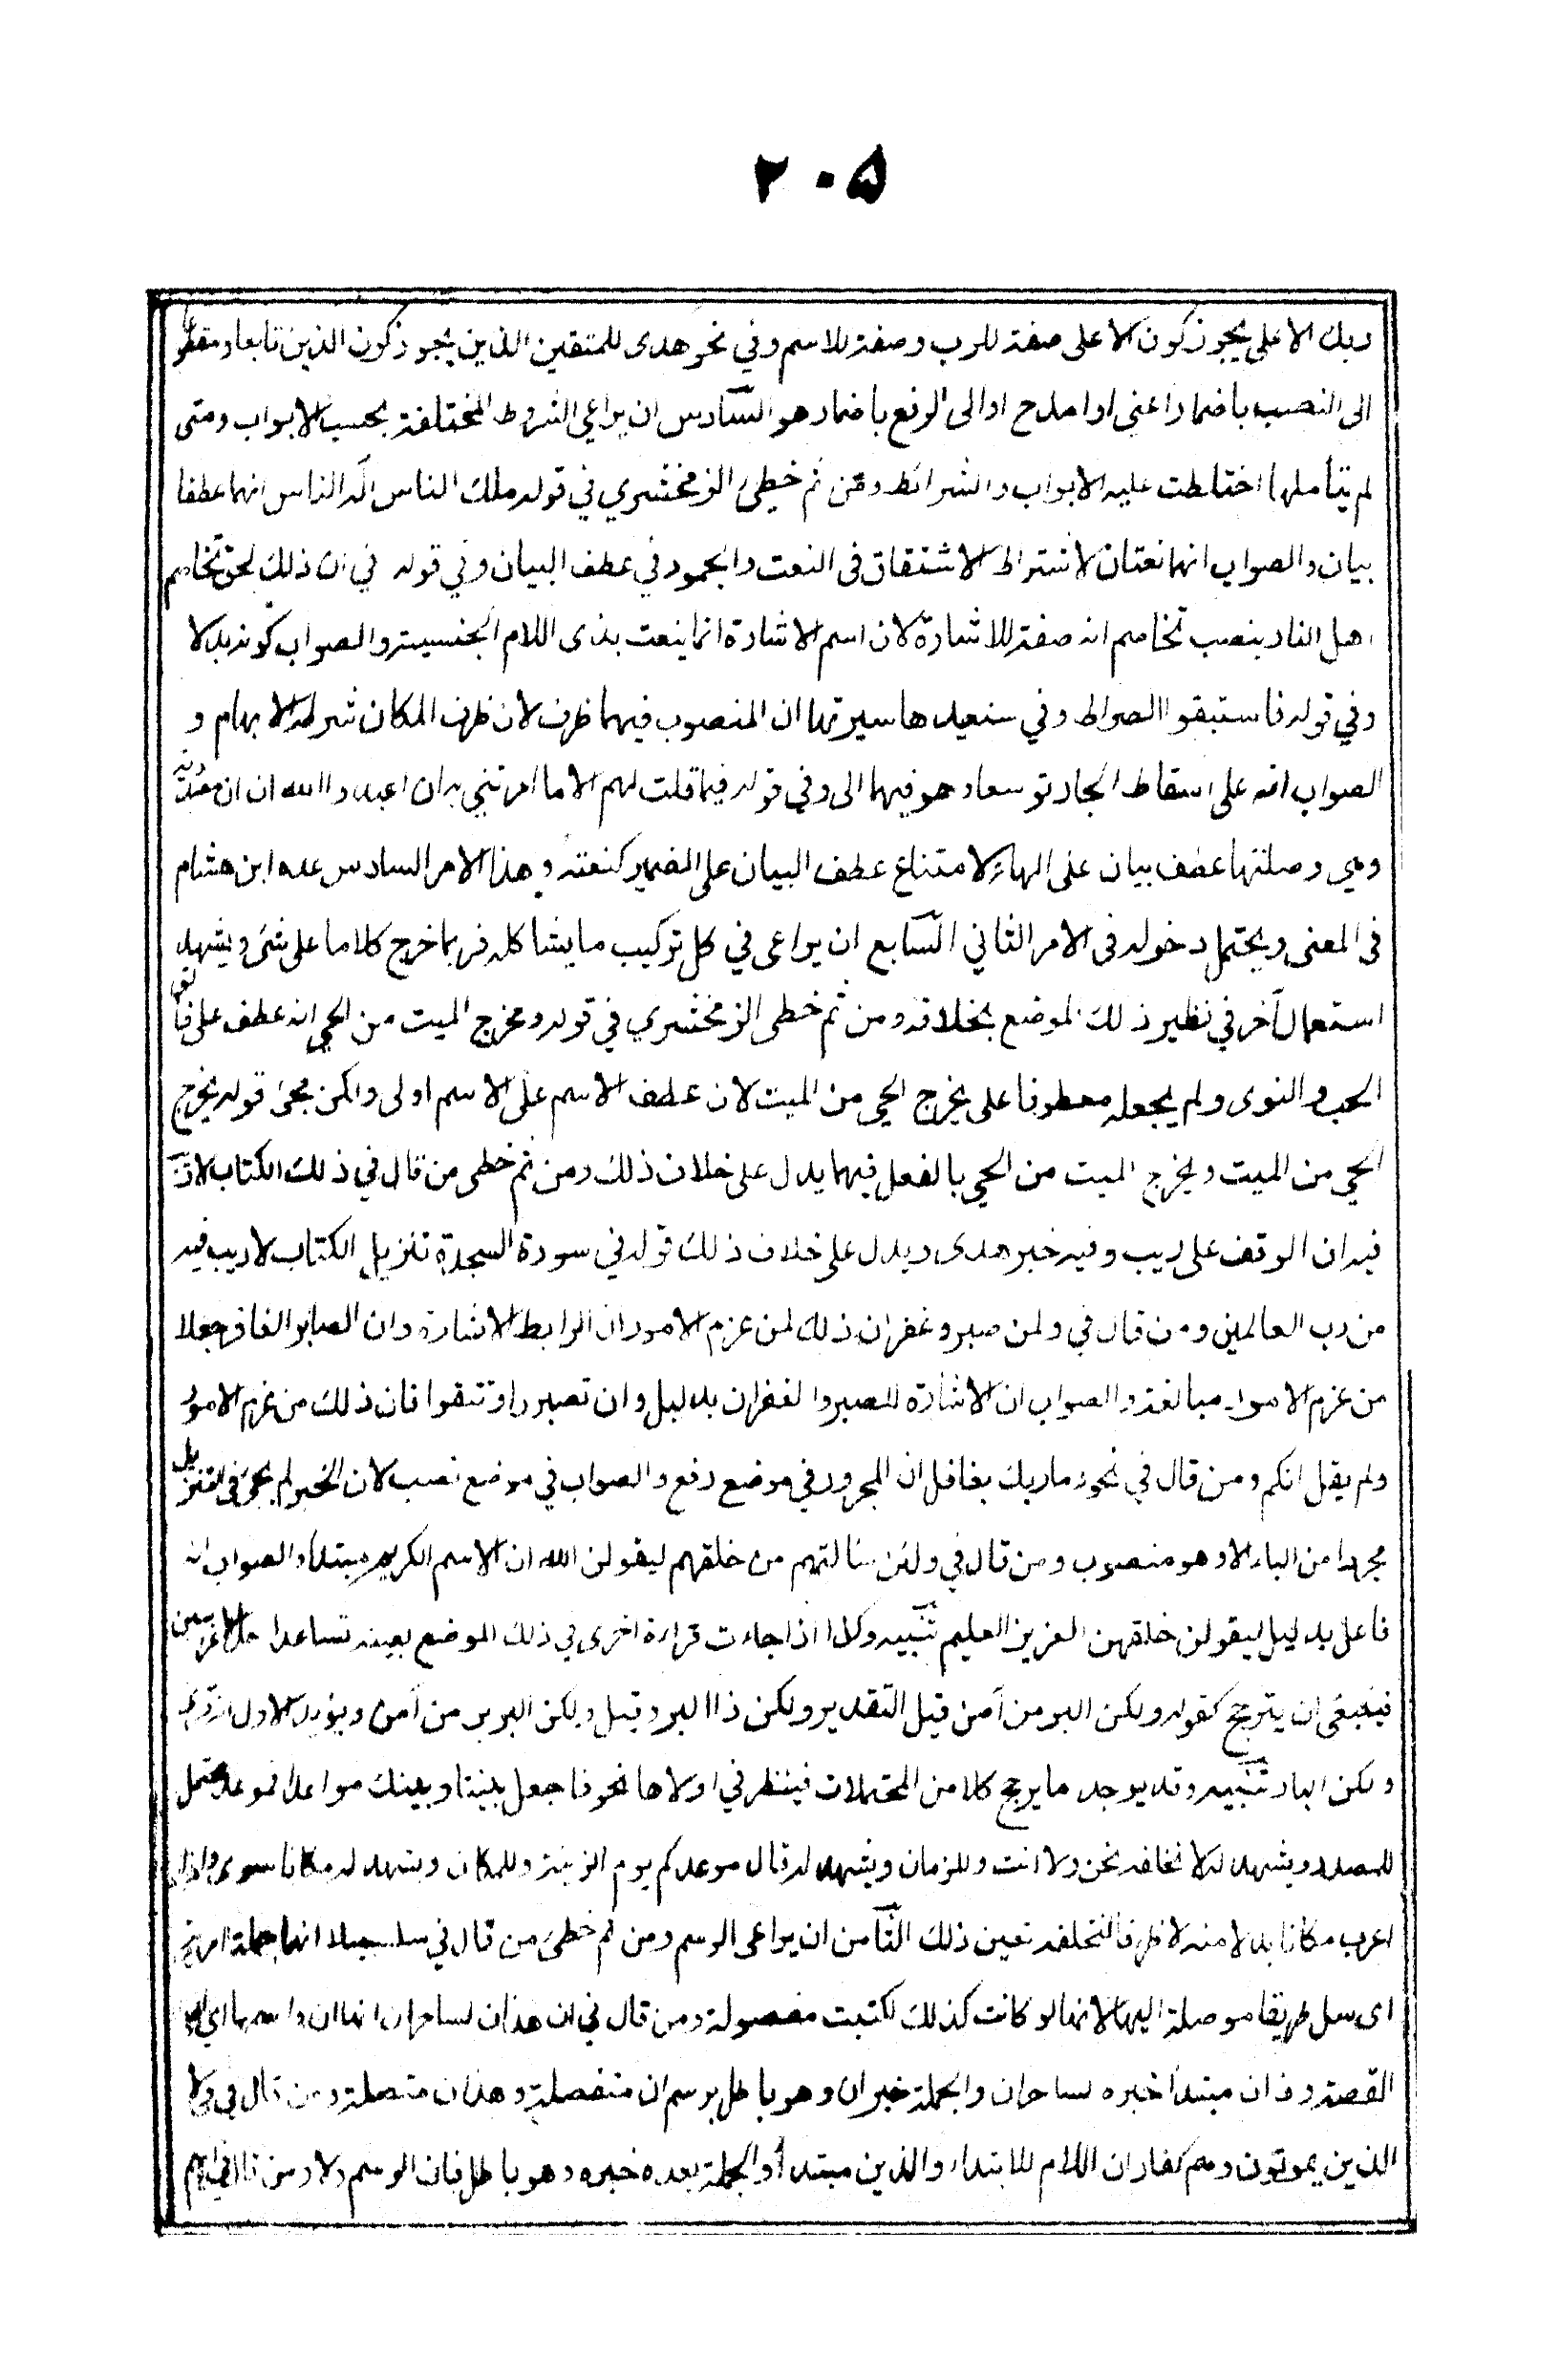 ٢٠۵
ربك الاعلى يجوز كون الاعلى صفة للرب وصفة للاسم وفي نحو هدى للمتقين الذين يجوز كون الذين تابعا ومقطوعا
الى النصب باضمار اعني او امدح او الى الرفع باضمار هو السادس ان يراعي الشروط المختلفة بحسب الابواب ومتى
لم يتأملها اختلطت عليه الابواب والشرائط ومن ثم خطئ الزمخشري في قوله ملك الناس اله الناس انهما عطفا
بيان والصواب انهما نعتان لاشتراط الاشتقاق فى النعت والجمود في عطف البيان وفي قوله في ان ذلك لحق تخاصم
اهل النار بنصب تخاصم انه صفة للاشارة لان اسم الاشارة انما ينعت بذى اللام الجنسية والصواب كونه بدلا
وفي قوله فاستبقوا الصراط وفي سنعيدها سيرتها ان المنصوب فيهما ظرف لان ظرف المكان شرطه الابهام و
الصواب انه على اسقاط الجار توسعا وهو فيهما الى وفي قوله فيما قلت لهم الا ما امرتني به ان اعبدوا الله ان ان مصدرية
وهي وصلتها عطف بيان على الهاء لامتناع عطف البيان على الضمير كنعته وهذا الامر السادس عده ابن هشام
فى المعنى ويحتمل دخوله فى الامر الثاني السابع ان يراعى في كل تركيب ما يشاكله فربما خرج كلاما على شئ ويشهد
استعمال آخر في نظير ذلك الموضع بخلافه ومن ثم خطى الزمخشري في قوله ومخرج الميت من الحي انه عطف على فالق
الحب والنوى ولم يجعله معطوفا على يخرج الحي من الميت لان عطف الاسم على الاسم اولى ولكن مجئ قوله يخرج
الحي من الميت ويخرج الميت من الحي بالفعل فيهما يدل على خلاف ذلك ومن ثم خطى من قال في ذلك الكتاب لا ريب
فيه ان الوقف على ريب وفيه خبر هدى ويدل على خلاف ذلك قوله في سورة السجدة تنزيل الكتاب لا ريب فيه
من رب العالمين ومن قال في ولمن صبر وغفر ان ذلك لمن عزم الامور ان الرابط الاشارة وان الصابر الغافر جعلا
من عزم الامور مبالغة والصواب ان الاشارة للصبر والغفران بدليل وان تصبروا وتتقوا فان ذلك من عزم الامور
ولم يقل انكم ومن قال في نحو وما ربك بغافل ان المجرور في موضع رفع والصواب في موضع نصب لان الخبر لم يجئ فى التنزيل
مجردا من الباء الا وهو منصوب ومن قال في ولئن سالتهم من خلقهم ليقولن الله ان الاسم الكريم مبتدأ والصواب انه
فاعل بدليل ليقولن خلقهن العزيز العليم تنبيه وكذا اذا جاءت قراءة اخرى في ذلك الموضع بعينه تساعد احد الاعرابين
فينبغى ان يترجح كقوله ولكن البر من آمن قيل التقدير ولكن ذا البر وقيل ولكن البر بر من آمن ويؤيد الاول انه قرئ
ولكن البار تنبيه وقد يوجد ما يرجح كلا من المحتملات فينظر في اولاها نحو فاجعل بيننا وبينك موعدا فموعدا محتمل
للمصدر ويشهد له لا نخلفه نحن ولا انت وللزمان ويشهد له قال موعدكم يوم الزينة وللمكان ويشهد له مكانا سوى واذا
اعرب مكانا بدلا منه لا ظرفا لنخلفه تعين ذلك الثامن ان يراعى الرسم ومن ثم خطئ من قال في سلسبيلا انها جملة امرية
اى سل طريقا موصلة اليها لانها لو كانت كذلك لكتبت مفصولة ومن قال في ان هذان لساحران انها ان واسمها اي ان
القصة وذان مبتدأ خبره لساحران والجملة خبر ان وهو باطل برسم ان منفصلة وهذان متصلة ومن قال في ولا
الذين يموتون وهم كفار ان اللام للابتداء والذين مبتدأ والجملة بعده خبره وهو باطل فان الرسم ولا ومن قال في ايهم